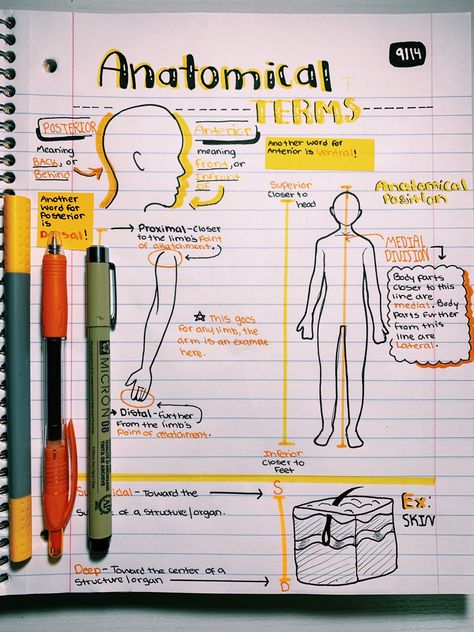 9/14
Anatomical
TERMS
POSTERIOR
Meaning
BACK, or
Behind
Anterior
meaning
Front, or
Infront
of
Another word for
Anterior is Ventral!
Another
word for
Posterior
is
Dorsal!
Proximal-closer
to the limb's Point
of attatchment.
This goes
for any limb, the
arm is an example
here.
Distal-further
From the limb's
Point of attatchment.
Superior
Closer to
head
Anatomical
Position
MEDIAL
DIVISION
Body parts
closer to this
line are
medial. Body
parts further
from this
line are
Lateral.
Inferior
Closer to
Feet
MICRON 08
Toward the
of a structure/organ.
Deep-Toward the center of a
structure/organ
S
D
Ex:
SKIN